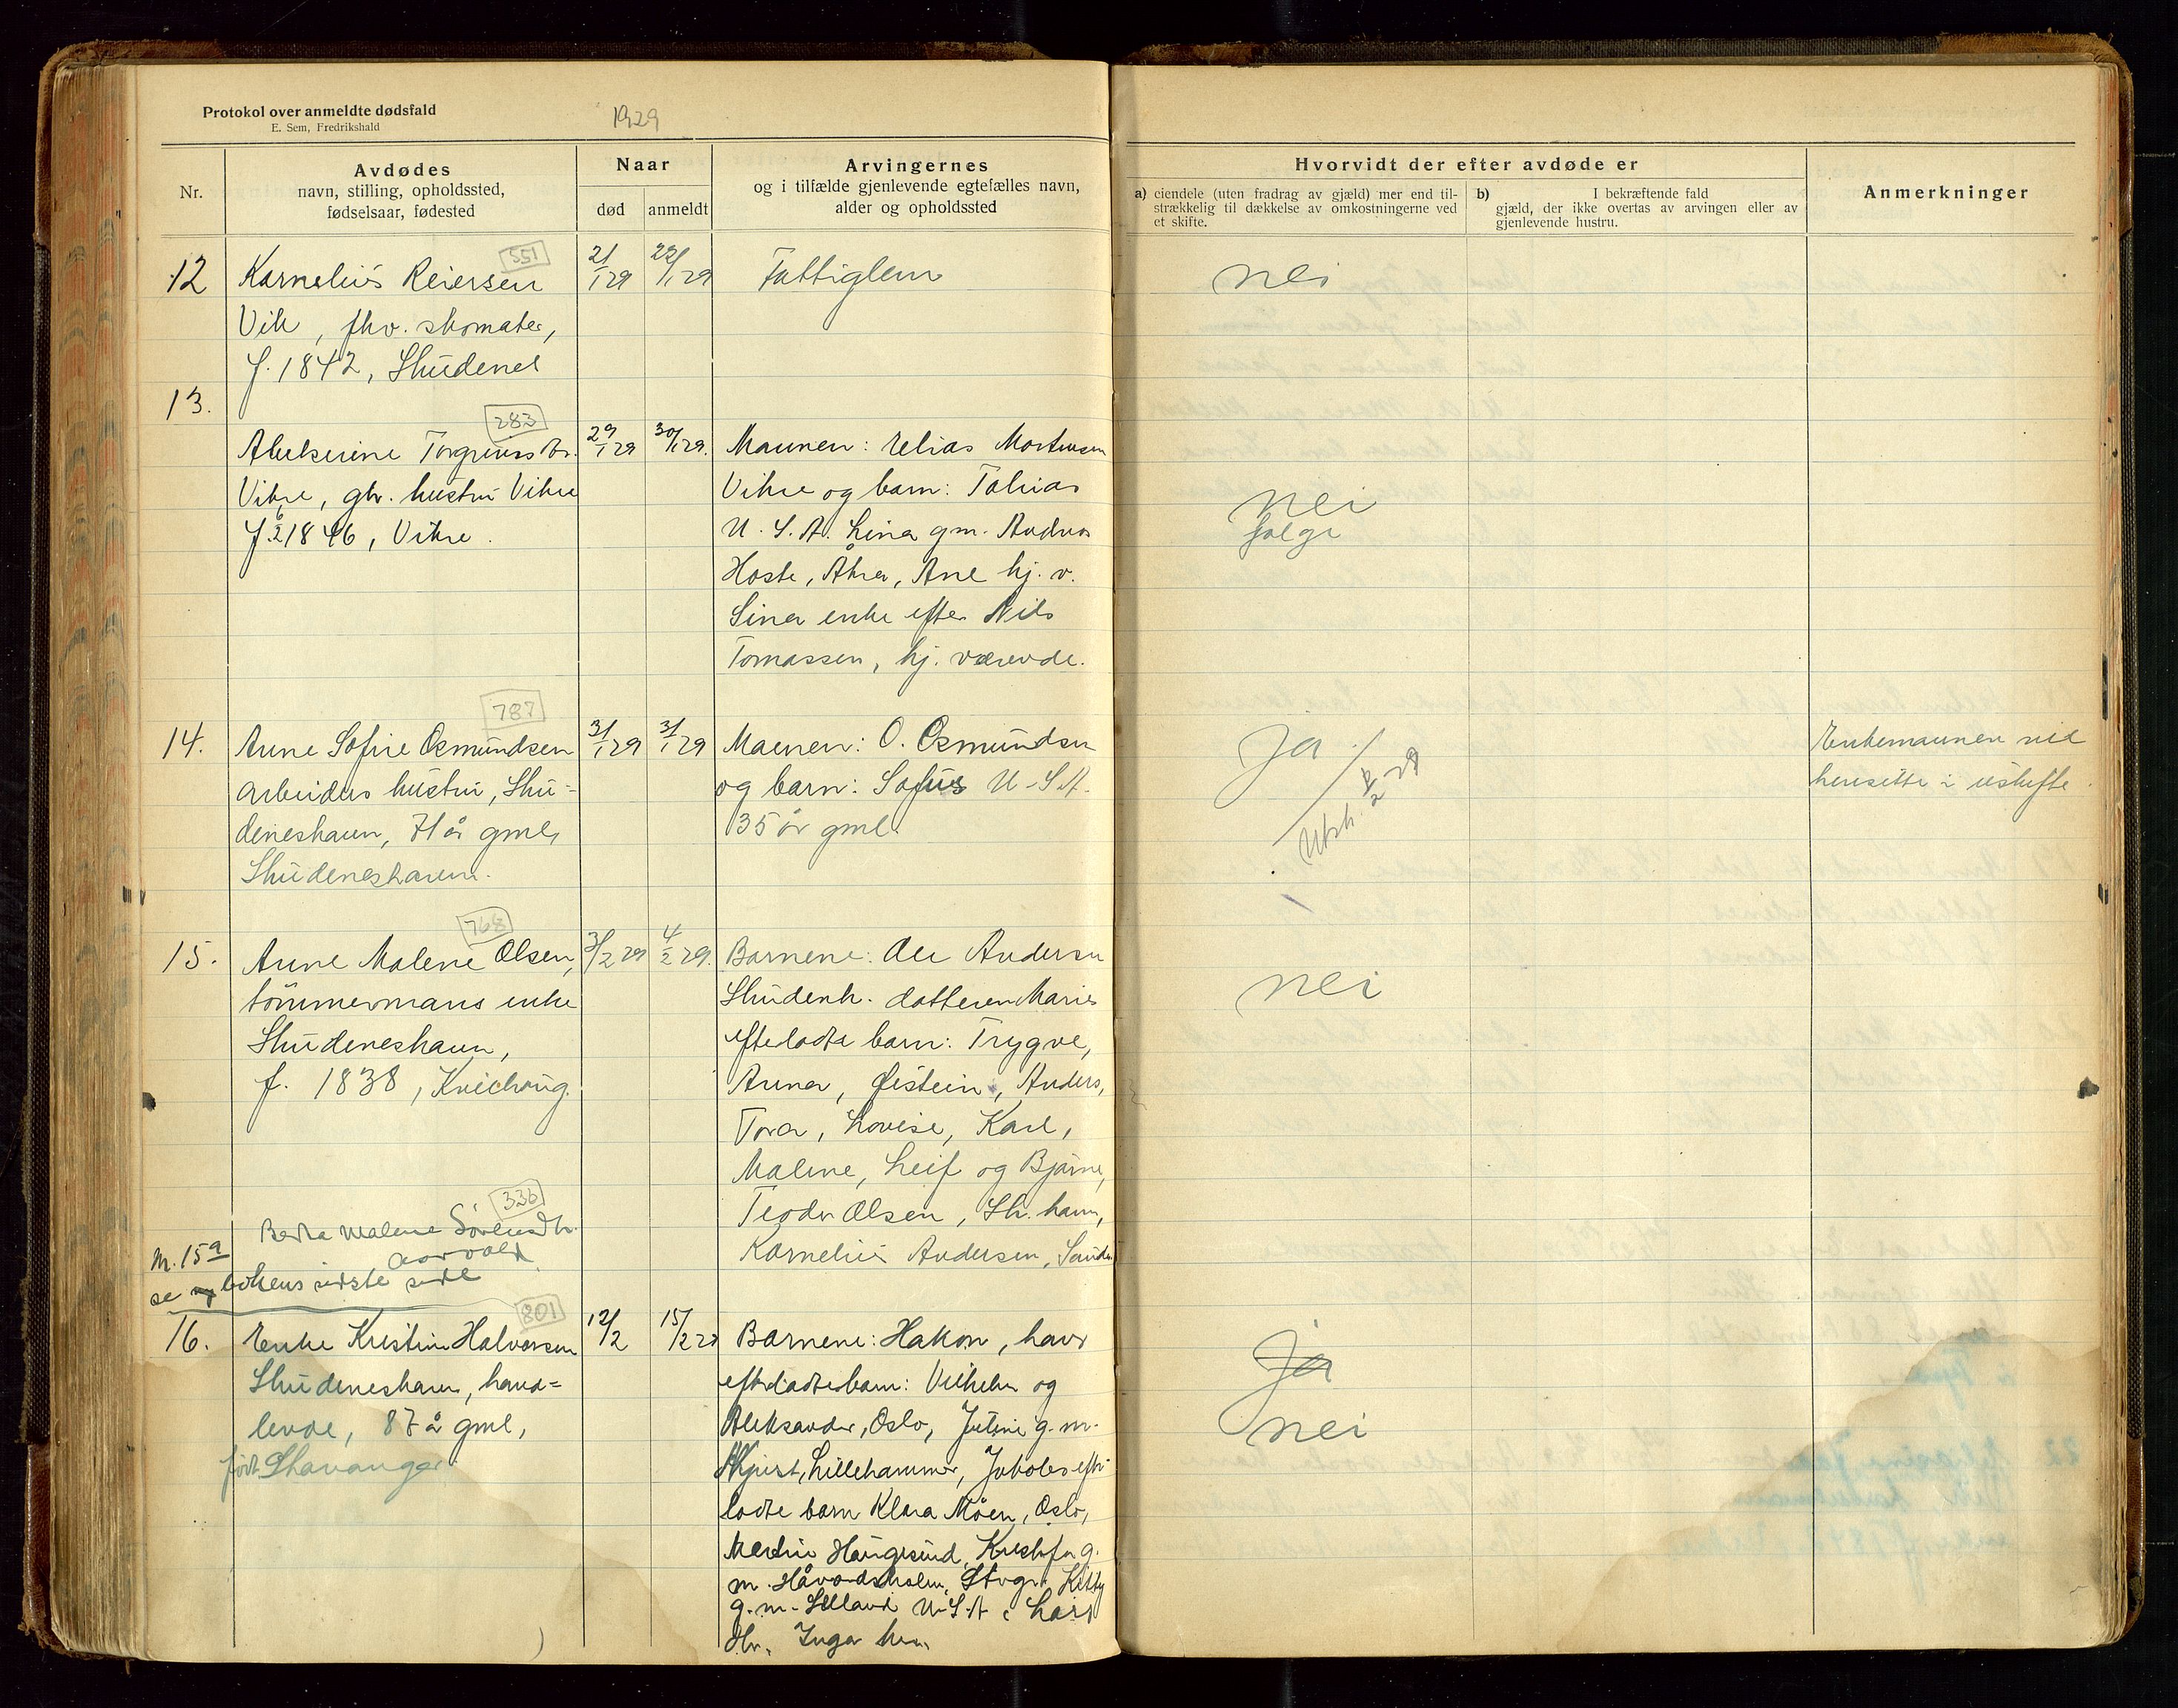 Protokol over anmeldte dødsfald
E. Sem, Fredrikshald
1929
Nr.
Avdødes
navn, stilling, opholdssted,
fødselsaar, fødested
Naar
død
anmeldt
Arvingernes
og i tilfælde gjenlevende egtefælles navn,
alder og opholdssted
Hvorvidt der efter avdøde er
a) eiendele (uten fradrag av gjæld) mer end til-
strækkelig til dækkelse av omkostningerne ved
et skifte.
b) I bekræftende fald
gjæld, der ikke overtas av arvingen eller av
gjenlevende hustru.
Anmerkninger
551
12
Kornelius Reiersen
Vik, fhv. skomaker,
f. 1842, Skudenes
21/1 29
22/1 29
Fattiglem
nei
13.
283
Vikre, gbr. hustru Vikre
f. 1846, Vikre.
29/1 29
30/1 29.
Mannen: Elias Mortensen
Vikre og barn: Tobias
U.S.A. Lina gm. Andreas
Hoste, Åkra, Ane hj. v.
Sina enke efter Nils
Tomassen, hj. værende.
nei
følge
787
14.
Anne Sofie Osmundsen
arbeiders hustru, Sku=
deneshavn, 71 år gml,
Skudeneshavn.
31/1 29
31/1 29
Mannen: O. Osmundsen
og barn: Sofus U.S.A.
35 år gml.
ja
Utsk. 29
Enkemannen
hensitte i uskifte.
768
15.
Anne Malene Olsen,
tømmermans enke
Skudeneshavn,
f. 1838, Kvidhaug.
3/2 29
4/2 29.
Barnene: Ole Andersen
Skudenh. datteren Maries
efterladte barn: Trygve,
Anna, Øistein, Anders,
Tora, Lovise, Karl,
Malene, Leif og Bjarne,
Teodor Olsen, Sk. havn,
Kornelius Andersen, Sande
nei
336
N. 15a
Berta Malene Sørensdtr.
Aarvold
se bokens sidste side
801
16.
Enke Kristine Halvorsen
Skudeneshavn, hand=
lende, 87 å gml,
født Stavanger
12/2
15/2 29
Barnene: Hakon, hans
efterladte barn: Vilhelm og
Aleksander, Oslo, g. m.
Lillehammer, Jakobs efter-
ladte barn Klara Möen, Oslo,
Martin Haugesund, g.
m. Stvgr. Kitty
g. m. U.S.A.
Inga
ja
nei